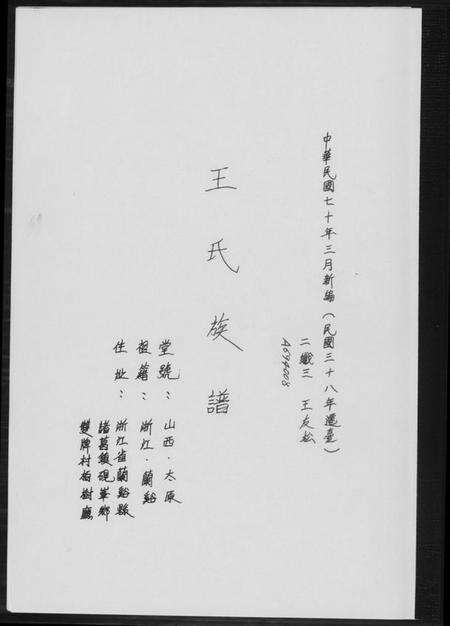 中華民國七十年三月新編(民國三十八年遷臺)
二纖三 王友松
A694008
王氏族譜
堂號:山西·太原
祖籍:浙江·蘭谿
住址:浙江省蘭谿縣
諸葛鎮硯峯鄉
雙牌村柏樹廳